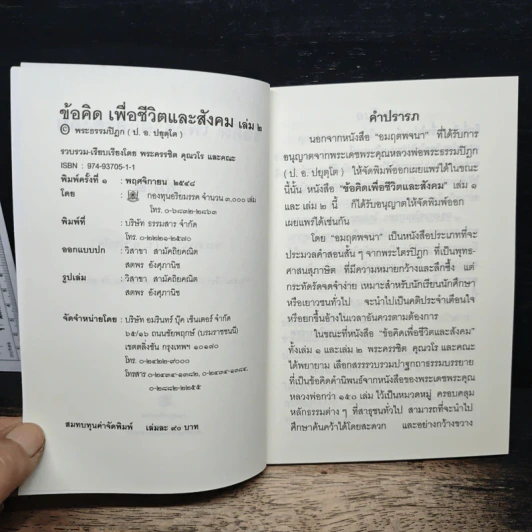 ข้อคิด เพื่อชีวิตและสังคม เล่ม ๒
© พระธรรมปิฎก ( ป. อ. ปยุตฺโต )
รวบรวม-เรียบเรียงโดย พระครรชิต คุณวโร และคณะ
ISBN : 974-93705-1-1
พิมพ์ครั้งที่ ๑ : พฤศจิกายน ๒๕๔๘
โดย : กองทุนอริยมรรค จำนวน ๓,๐๐๐ เล่ม
พิมพ์ที่ : บริษัท ธรรมสาร จำกัด
โทร. ๐-๒๒๒๑-๒๕๗๐
ออกแบบปก : วิสาขา สามัคถิยคณิต
สตพร อังศุภานิช
รูปเล่ม : วิสาขา สามัคถิยคณิต
สตพร อังศุภานิช
จัดจำหน่ายโดย : บริษัท อมรินทร์ บุ๊ค เซ็นเตอร์ จำกัด
๖๕/๑๖ ถนนชัยพฤกษ์ (บรมราชชนนี)
เขตตลิ่งชัน กรุงเทพฯ ๑๐๑๗๐
โทร. ๐-๒๔๒๒-๙๐๐๐
โทรสาร
สมทบทุนค่าจัดพิมพ์ เล่มละ ๙๐ บาท
คำปรารภ
นอกจากหนังสือ "อมฤตพจนา" ที่ได้รับการ
อนุญาตจากพระเดชพระคุณหลวงพ่อพระธรรมปิฎก
( ป. อ. ปยุตฺโต ) ให้จัดพิมพ์ออกเผยแพร่ได้ในขณะ
นี้นั้น หนังสือ "ข้อคิดเพื่อชีวิตและสังคม" เล่ม ๑
และ เล่ม ๒ นี้ ก็ได้รับอนุญาตให้จัดพิมพ์ออก
เผยแพร่ได้เช่นกัน
โดย "อมฤตพจนา" เป็นหนังสือประเภทที่จะ
ประมวลคำสอนสั้น ๆ จากพระไตรปิฎก ที่เป็นพุทธ-
ศาสนสุภาษิต ที่มีความหมายกว้างและลึกซึ้ง แต่
กระทัดรัดจดจำง่าย เหมาะสำหรับนักเรียนนักศึกษา
หรือเยาวชนทั่วไป จะนำไปเป็นคติประจำเตือนใจ
หรือยกขึ้นอ้างในเวลาอันควรตามต้องการ
ในขณะที่หนังสือ "ข้อคิดเพื่อชีวิตและสังคม"
ทั้งเล่ม ๑ และเล่ม ๒ พระครรชิต คุณวโร และคณะ
ได้พยายาม เลือกสรรรวบรวมปาฐกถาธรรมบรรยาย
ที่เป็นข้อคิดคำนิพนธ์จากหนังสือของพระเดชพระคุณ
หลวงพ่อกว่า ๑๕๐ เล่ม ไว้เป็นหมวดหมู่ ครอบคลุม
หลักธรรมต่าง ๆ ที่สาธุชนทั่วไป สามารถที่จะนำไป
ศึกษาค้นคว้าได้โดยสะดวก และอย่างกว้างขวาง